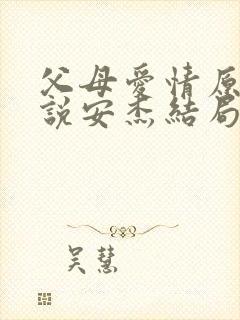 父母愛情原
說安杰結局
吴慧